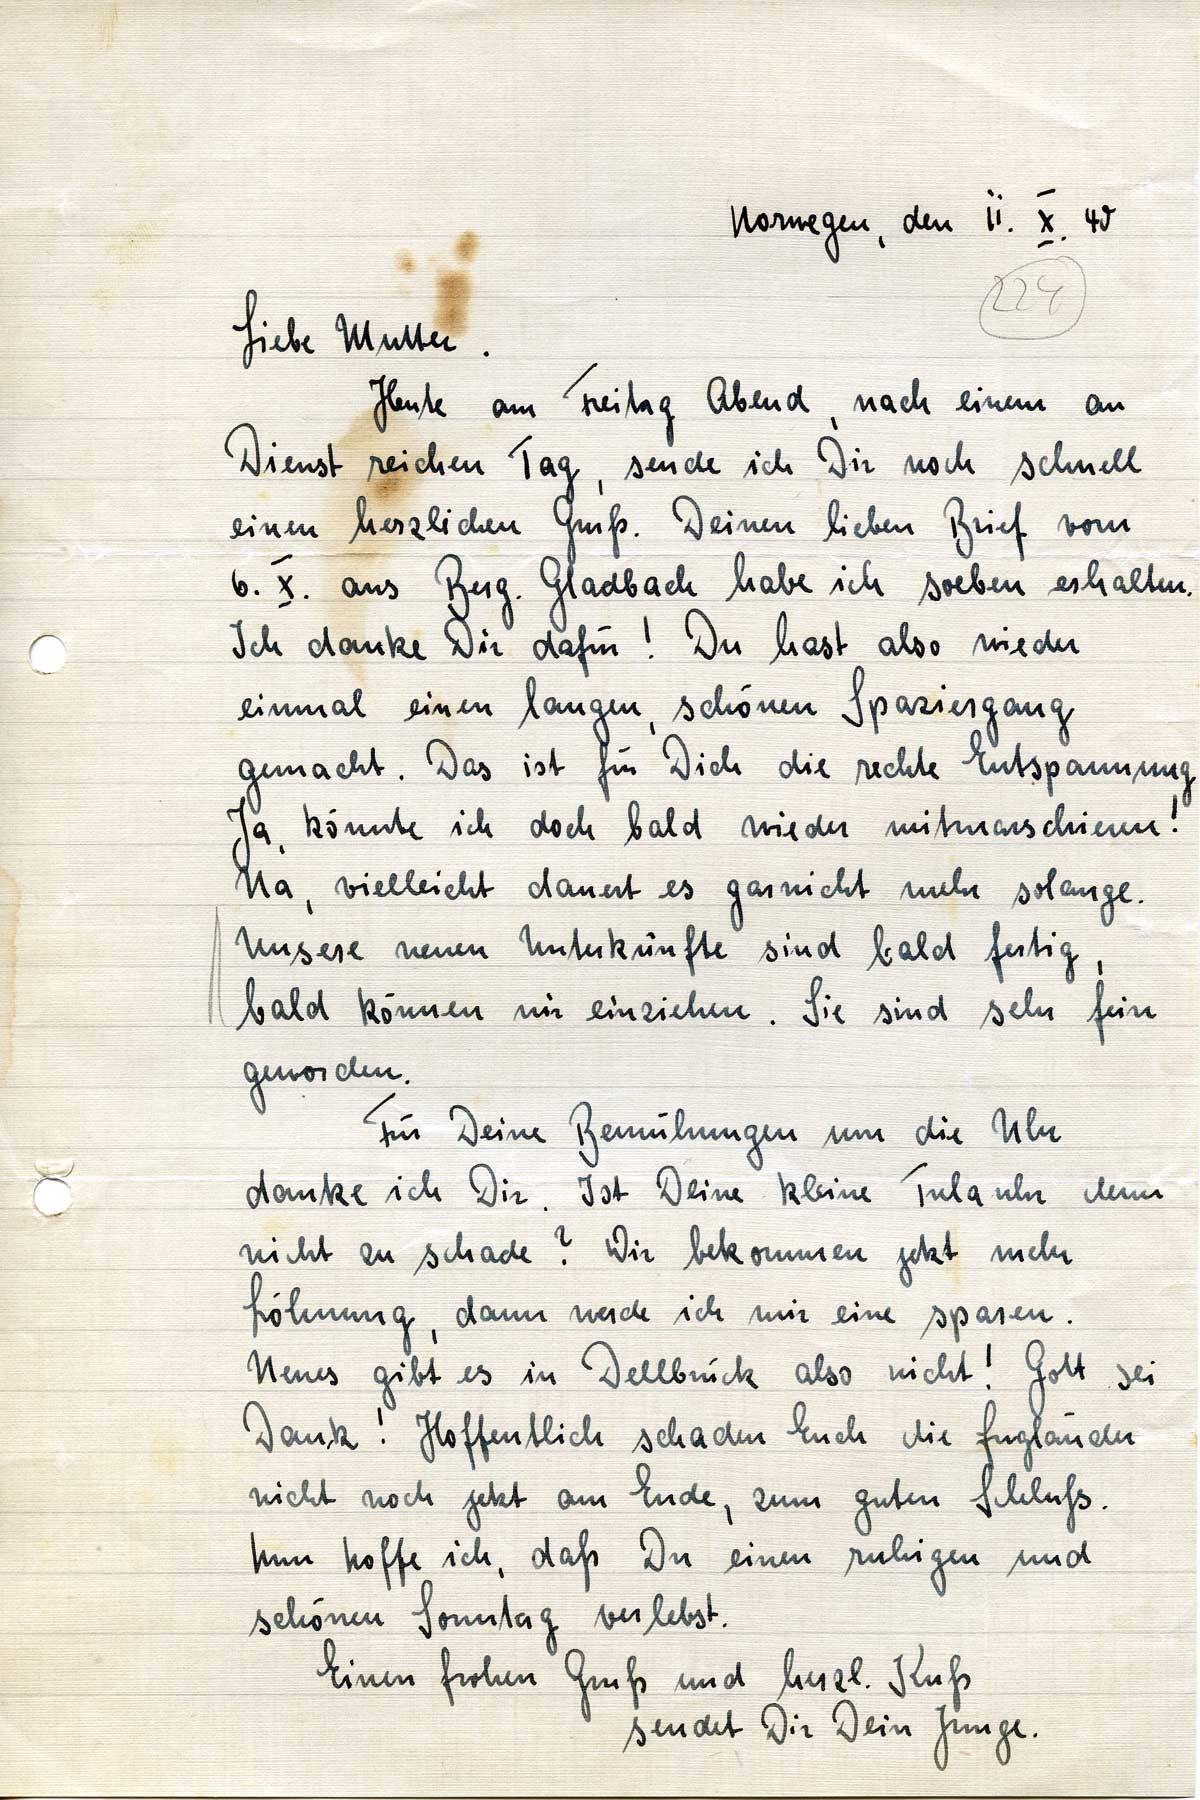 Norwegen, den 11. X. 40
224
Liebe Mutter.
Heute am Freitag Abend, nach einem an
Dienst reichen Tag, sende ich Dir noch schnell
einen herzlichen Gruß. Deinen lieben Brief vom
6. X. aus Berg. Gladbach habe ich soeben erhalten.
Ich danke Dir dafür! Du hast also wieder
einmal einen langen, schönen Spaziergang
gemacht. Das ist für Dich die rechte Entspannung
Ja, könnte ich doch bald wieder mitmarschieren!
Na, vielleicht dauert es garnicht mehr solange.
Unsere neuen Unterkünfte sind bald fertig,
bald können wir einziehen. Sie sind sehr fein
geworden.
Für Deine Bemühungen um die Uhr
danke ich Dir. Ist Deine kleine Tula uhr denn
nicht zu schade? Wir bekommen jetzt mehr
Löhnung, dann werde ich mir eine sparen.
Neues gibt es in Dellbrück also nicht! Gott sei
Dank! Hoffentlich schaden Euch die Engländer
nicht noch jetzt am Ende, zum guten Schluß.
Nun hoffe ich, daß Du einen ruhigen und
schönen Sonntag verlebst.
Einen frohen Gruß und herzl. Kuß
sendet Dir Dein Junge.